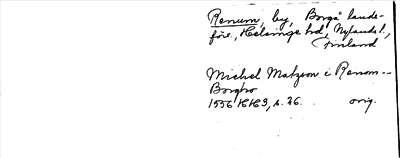 Renum, by, Borgå lands-
förs., Helsinge hd, Nylands l.,
Finland
Michel Matzson i Renom --
Borgbo
1556 KHH3, s. 26. orig.